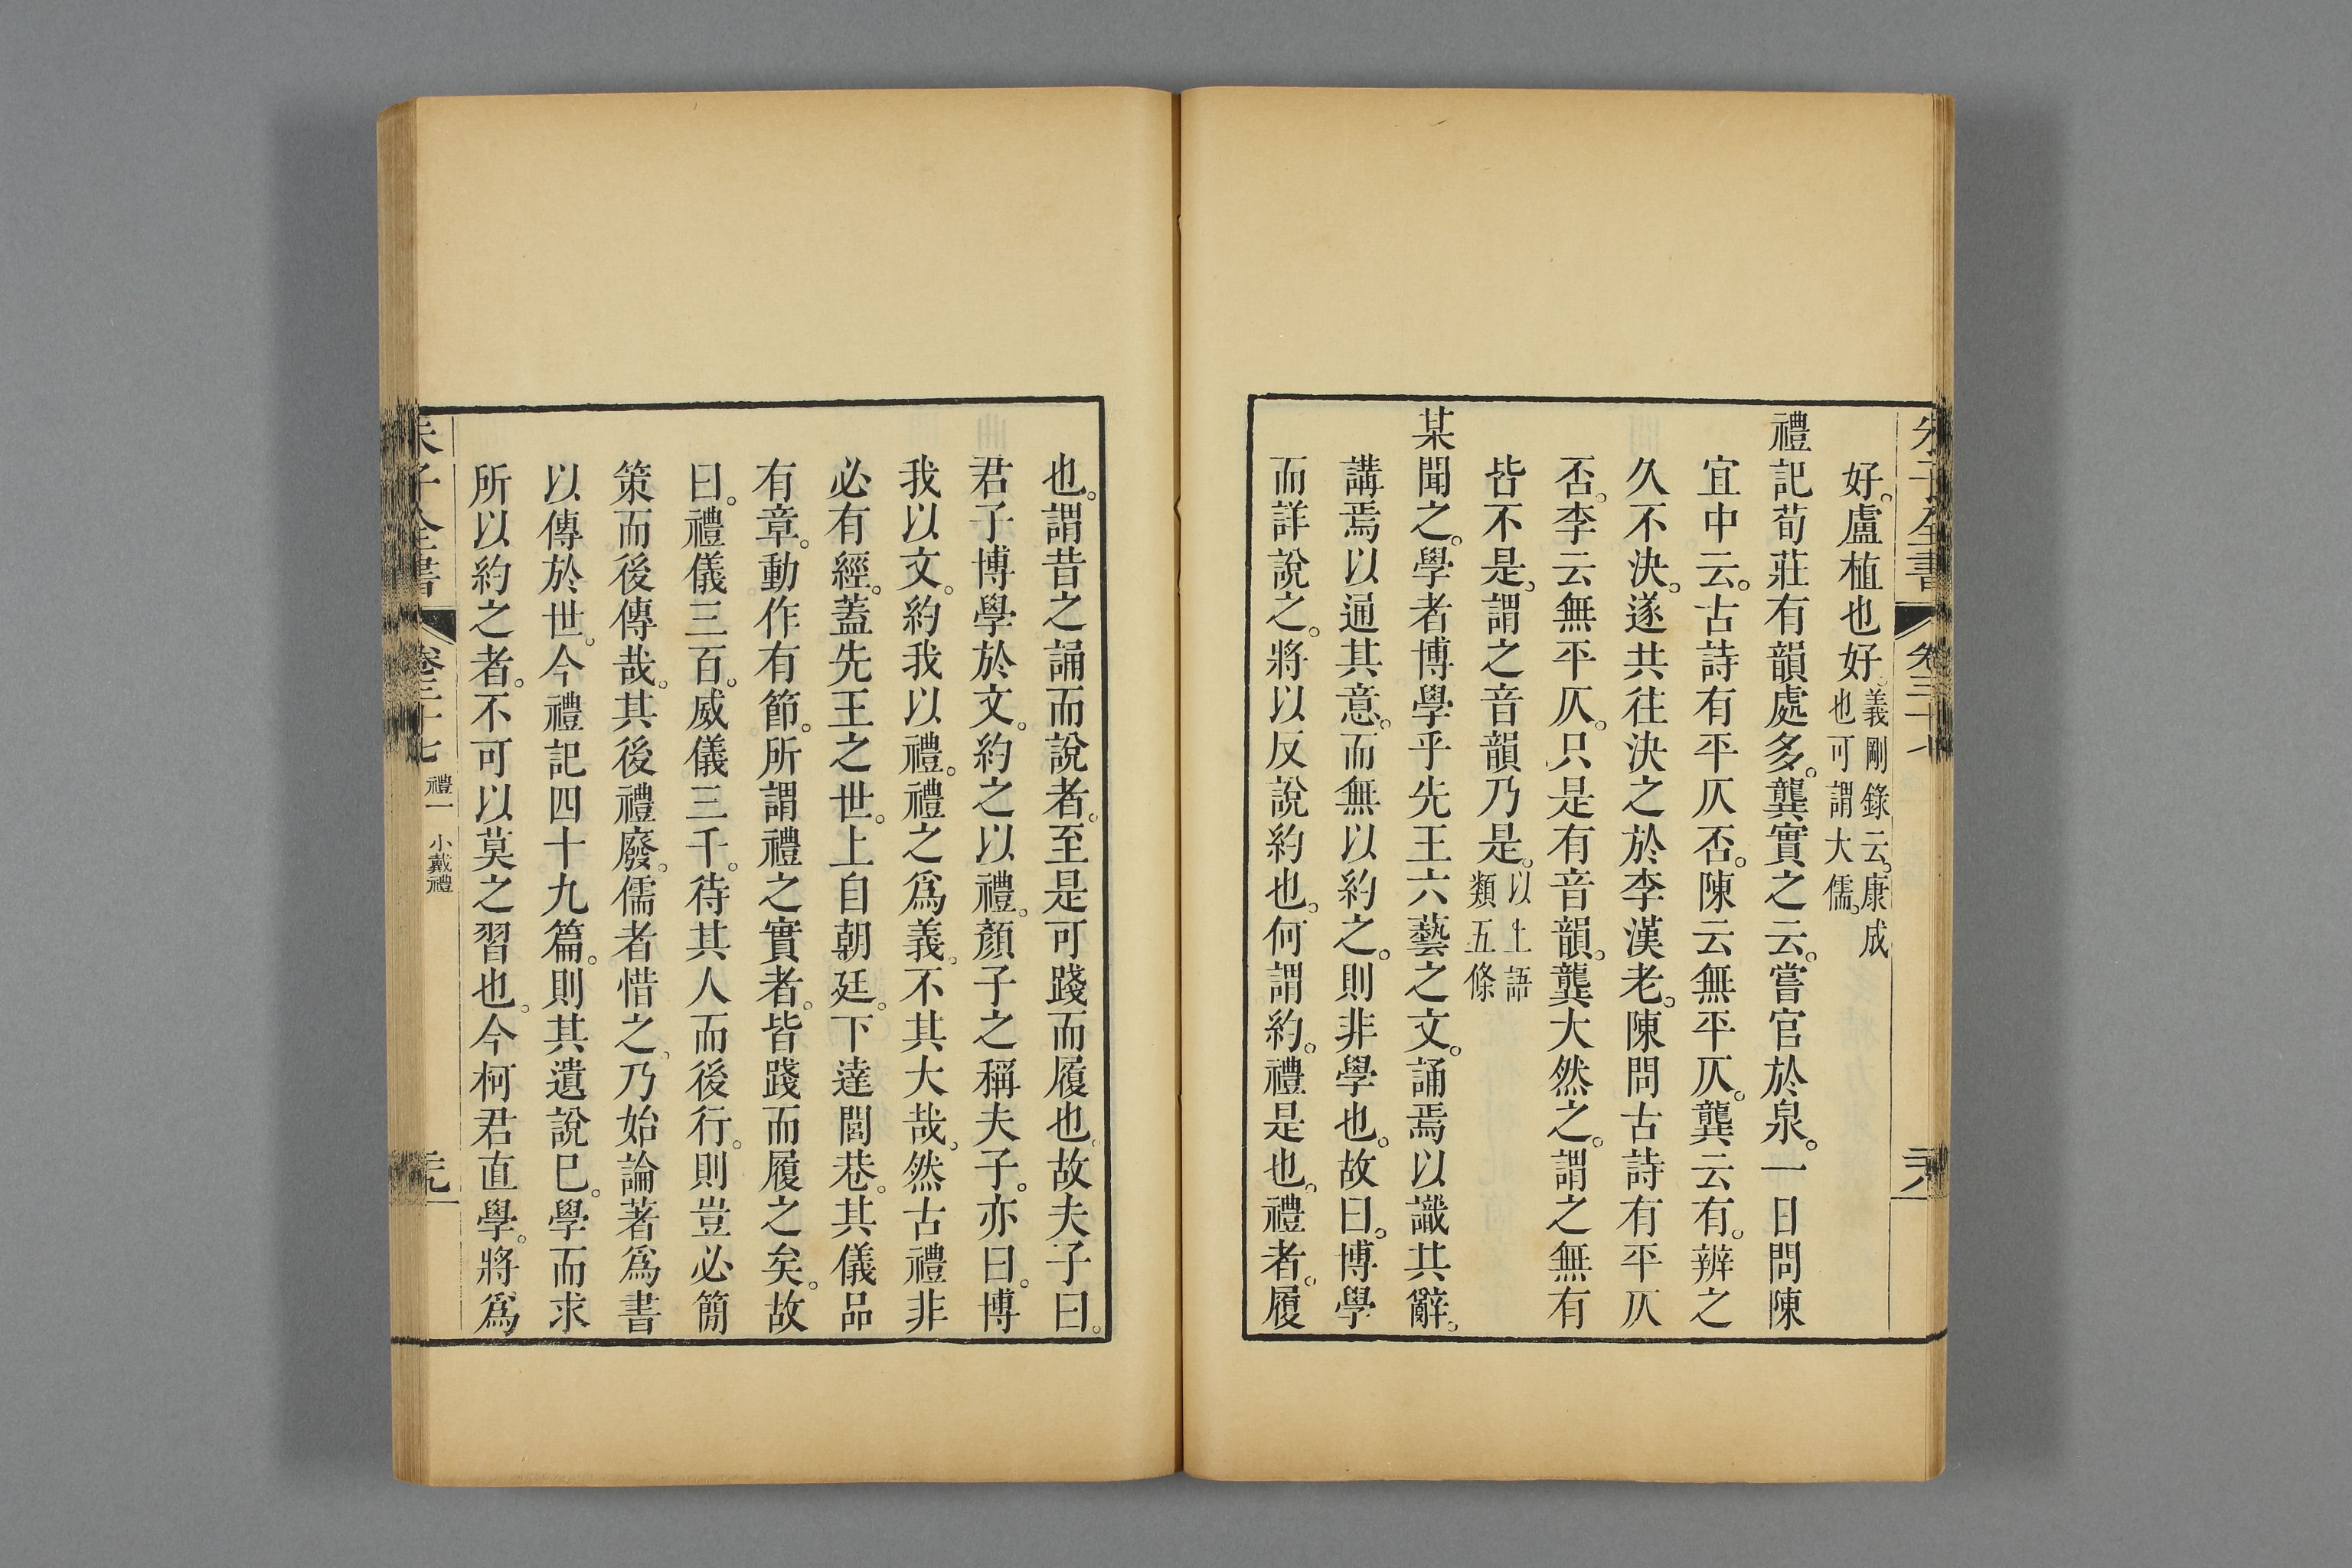 朱子全書 卷三十七 二十八
好。盧植也好。義剛錄云。康成也可謂大儒。
禮記荀莊有韻處多。龔實之云。嘗官於泉。一日問陳
宜中云。古詩有平仄否。陳云無平仄。龔云有。辨之
久不決。遂共往決之於李漢老。陳問古詩有平仄
否。李云無平仄。只是有音韻。龔大然之。謂之無有
皆不是。謂之音韻乃是。以上語類五條
某聞之。學者博學乎先王六藝之文。誦焉以識其辭。
講焉以通其意。而無以約之。則非學也。故曰。博學
而詳說之。將以反說約也。何謂約。禮是也。禮者。履
也。謂昔之誦而說者。至是可踐而履也。故夫子曰。
君子博學於文。約之以禮。顏子之稱夫子。亦曰。博
我以文。約我以禮。禮之為義。不其大哉。然古禮非
必有經。蓋先王之世。上自朝廷。下達閭巷。其儀品
有章。動作有節。所謂禮之實者。皆踐而履之矣。故
曰。禮儀三百。威儀三千。待其人而後行。則豈必簡
策而後傳哉。其後禮廢。儒者惜之。乃始論著為書
以傳於世。今禮記四十九篇。則其遺說已。學而求
所以約之者。不可以莫之習也。今柯君直學。將為
朱子全書 卷三十七 禮一 小戴禮 二十九